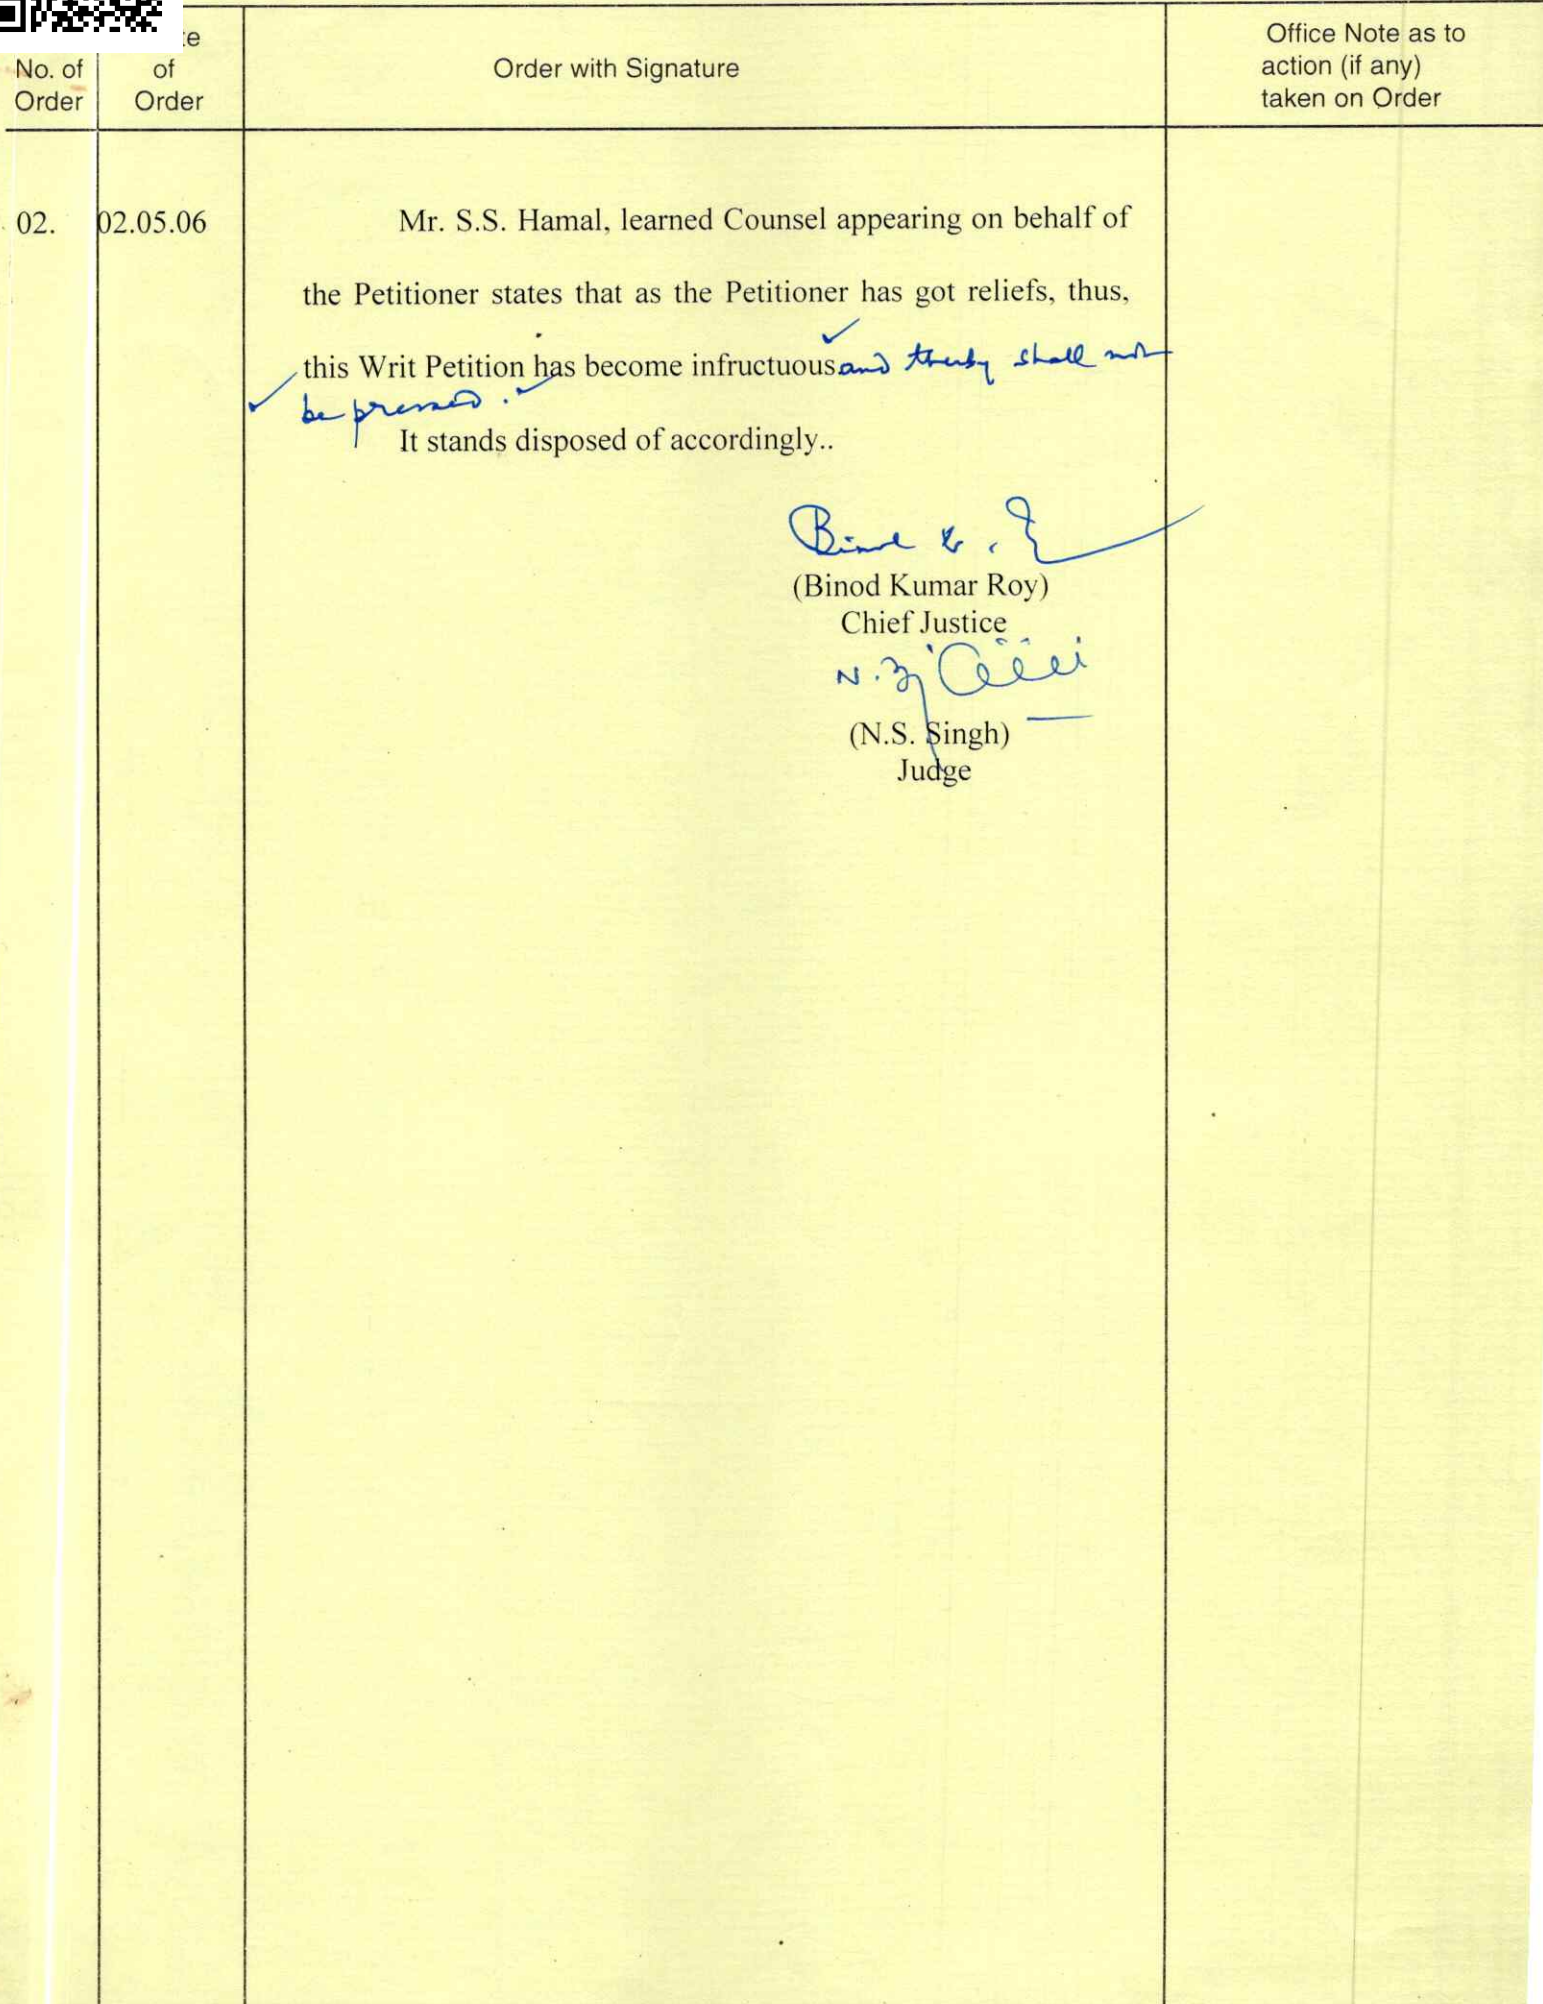 No. of
Order
of
Order
Order with Signature
Office Note as to
action (if any)
taken on Order
02. 02.05.06 Mr. S.S. Hamal, learned Counsel appearing on behalf of
the Petitioner states that as the Petitioner has got reliefs, thus,
this Writ Petition has become infructuous and thereby shall not
be pressed.
It stands disposed of accordingly..
(Binod Kumar Roy)
Chief Justice
(N.S. Singh)
Judge